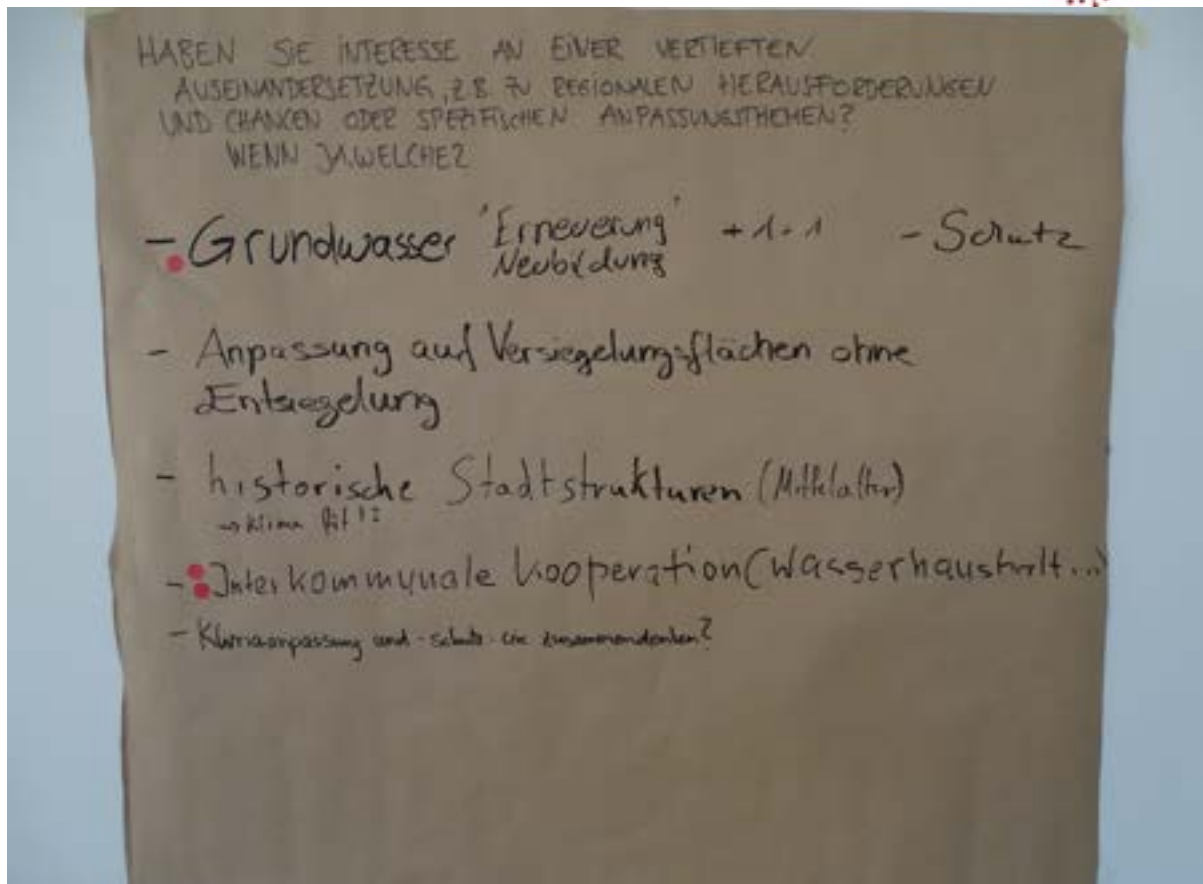 HABEN SIE INTERESSE AN EINER VERTIEFTEN
AUSEINANDERSETZUNG, Z.B. ZU REGIONALEN HERAUSFORDERUNGEN
UND CHANCEN ODER SPEZIFISCHEN ANPASSUNGSTHEMEN?
WENN JA, WELCHE?
- Grundwasser 'Erneuerung' +1+1 - Schutz
Neubildung
- Anpassung auf Versiegelungsflächen ohne
Entsiegelung
- historische Stadtstrukturen (Mittelalter)
→ Klima fit !?
- Interkommunale Kooperation (Wasserhaushalt...)
- Klimaanpassung und -schutz wie zusammendenken?